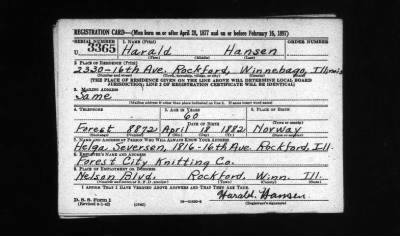 REGISTRATION CARD—(Men born on or after April 28, 1877 and on or before February 16, 1897)
SERIAL NUMBER 1. NAME (Print) ORDER NUMBER
U 3365 Harald Hansen
(First) (Middle) (Last)
2. PLACE OF RESIDENCE (Print)
2330-16th Ave, Rockford, Winnebago, Illinois
(Number and street) (Town, township, village, or city) (County) (State)
[THE PLACE OF RESIDENCE GIVEN ON THE LINE ABOVE WILL DETERMINE LOCAL BOARD
JURISDICTION; LINE 2 OF REGISTRATION CERTIFICATE WILL BE IDENTICAL]
3. MAILING ADDRESS
Same
[Mailing address if other than place indicated on line 2. If same insert word same]
4. TELEPHONE 5. AGE IN YEARS 6. PLACE OF BIRTH
60
DATE OF BIRTH
Forest 8872 April 18 1882 Norway
(Exchange) (Number) (Mo.) (Day) (Yr.) (State or country)
7. NAME AND ADDRESS OF PERSON WHO WILL ALWAYS KNOW YOUR ADDRESS
Helga Seversen, 1816-16th Ave Rockford, Ill.
8. EMPLOYER'S NAME AND ADDRESS
Forest City Knitting Co.
9. PLACE OF EMPLOYMENT OR BUSINESS
Nelson Blvd. Rockford, Winn. Ill.
(Number and street or R. F. D. number) (Town) (County) (State)
I AFFIRM THAT I HAVE VERIFIED ABOVE ANSWERS AND THAT THEY ARE TRUE.
D. S. S. Form 1
(Revised 4-1-42) (over) Harald Hansen
(Registrant's signature)